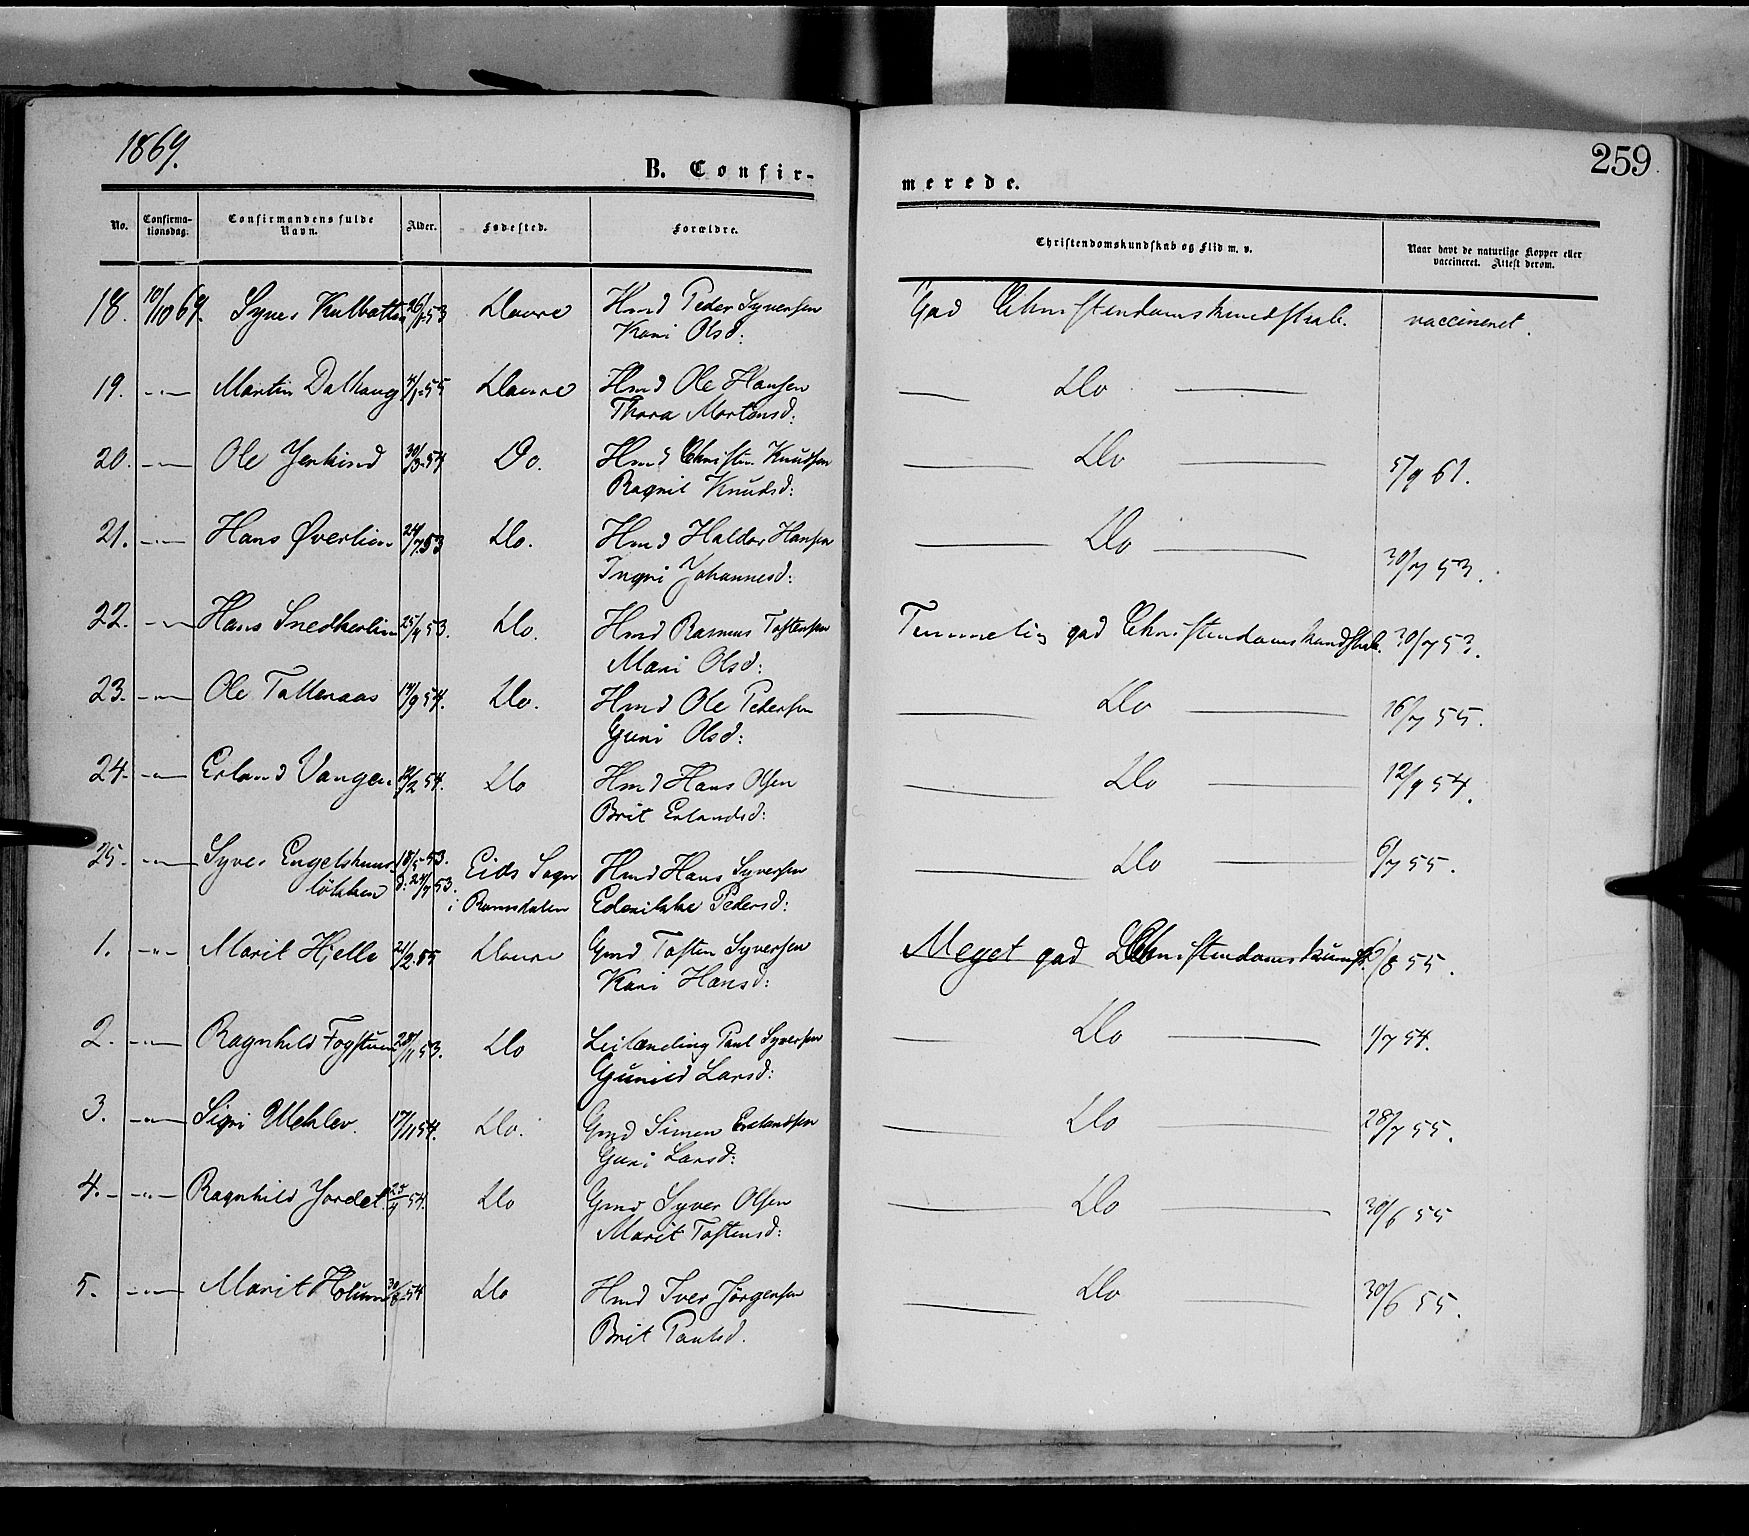 1869.
259
B. Confir-
merede.
No.
Confirma-
tionsdag.
Confirmandens fulde
Navn.
Alder.
Fødested.
Forældre.
Christendomskundskab og Flid m. v.
Naar havt de naturlige Kopper eller
vaccineret. Attest derom.
18. 10/10 69. Syver 53 Dovre Hmd Peder Syversen God Christendomskundskab. vaccineret.
Kari Olsd:
19. -"- Martin Dalhaug 55 Dovre Hmd Ole Hansen — Do —
Thora Mortensd:
20. -"- Ole Jerkind 30/3 54 Do. Hmd Christen Knudsen — Do — 5/9 61.
Ragnil Knudsd:
21. -"- Hans Øverlien 24/7 53 Do. Hmd Haldor Hansen — Do — 30/7 53.
Ingri Johannesd:
22. -"- Hans Snedkerlien 25/4 53. Do. Hmd Rasmus Tostensen Temmelig god Christendomskundskab. 30/7 53.
Mari Olsd:
23. -"- Ole Talleraas 14/9 54. Do. Hmd Ole Pedersen — Do — 16/7 55.
Guri Olsd:
24. -"- Erland Vangen 12/2 54. Do Hmd Hans Olsen — Do — 12/9 54.
Brit Erlandsd:
25. -"- Syver Engelshus- 18/5 53. Eids Sogn Hmd Hans Syversen — Do — 6/7 55.
løkken d: 24/7 53. i Romsdalen Pedersd:
1. -"- Marit Hjelle 21/2 55 Dovre Gmd Tosten Syversen Meget god Christendomskundsk. 6/8 55.
Kari Hansd:
2. -"- Ragnhild Fogstuen 28/11 53. Do Leilænding Paul Syversen — Do — 1/7 54.
Gunild Larsd:
3. -"- Sigri 17/11 54. Do. Gmd Simen Erlandsen — Do — 28/7 55.
Guri Larsd:
4. -"- Ragnhild Jordet 25/4 54. Do Gmd Syver Olsen — Do — 30/6 55
Marit Tostensd:
5. -"- Marit Holum 54 Do Hmd Iver Jørgensen — Do — 30/6 55.
Brit Paulsd.